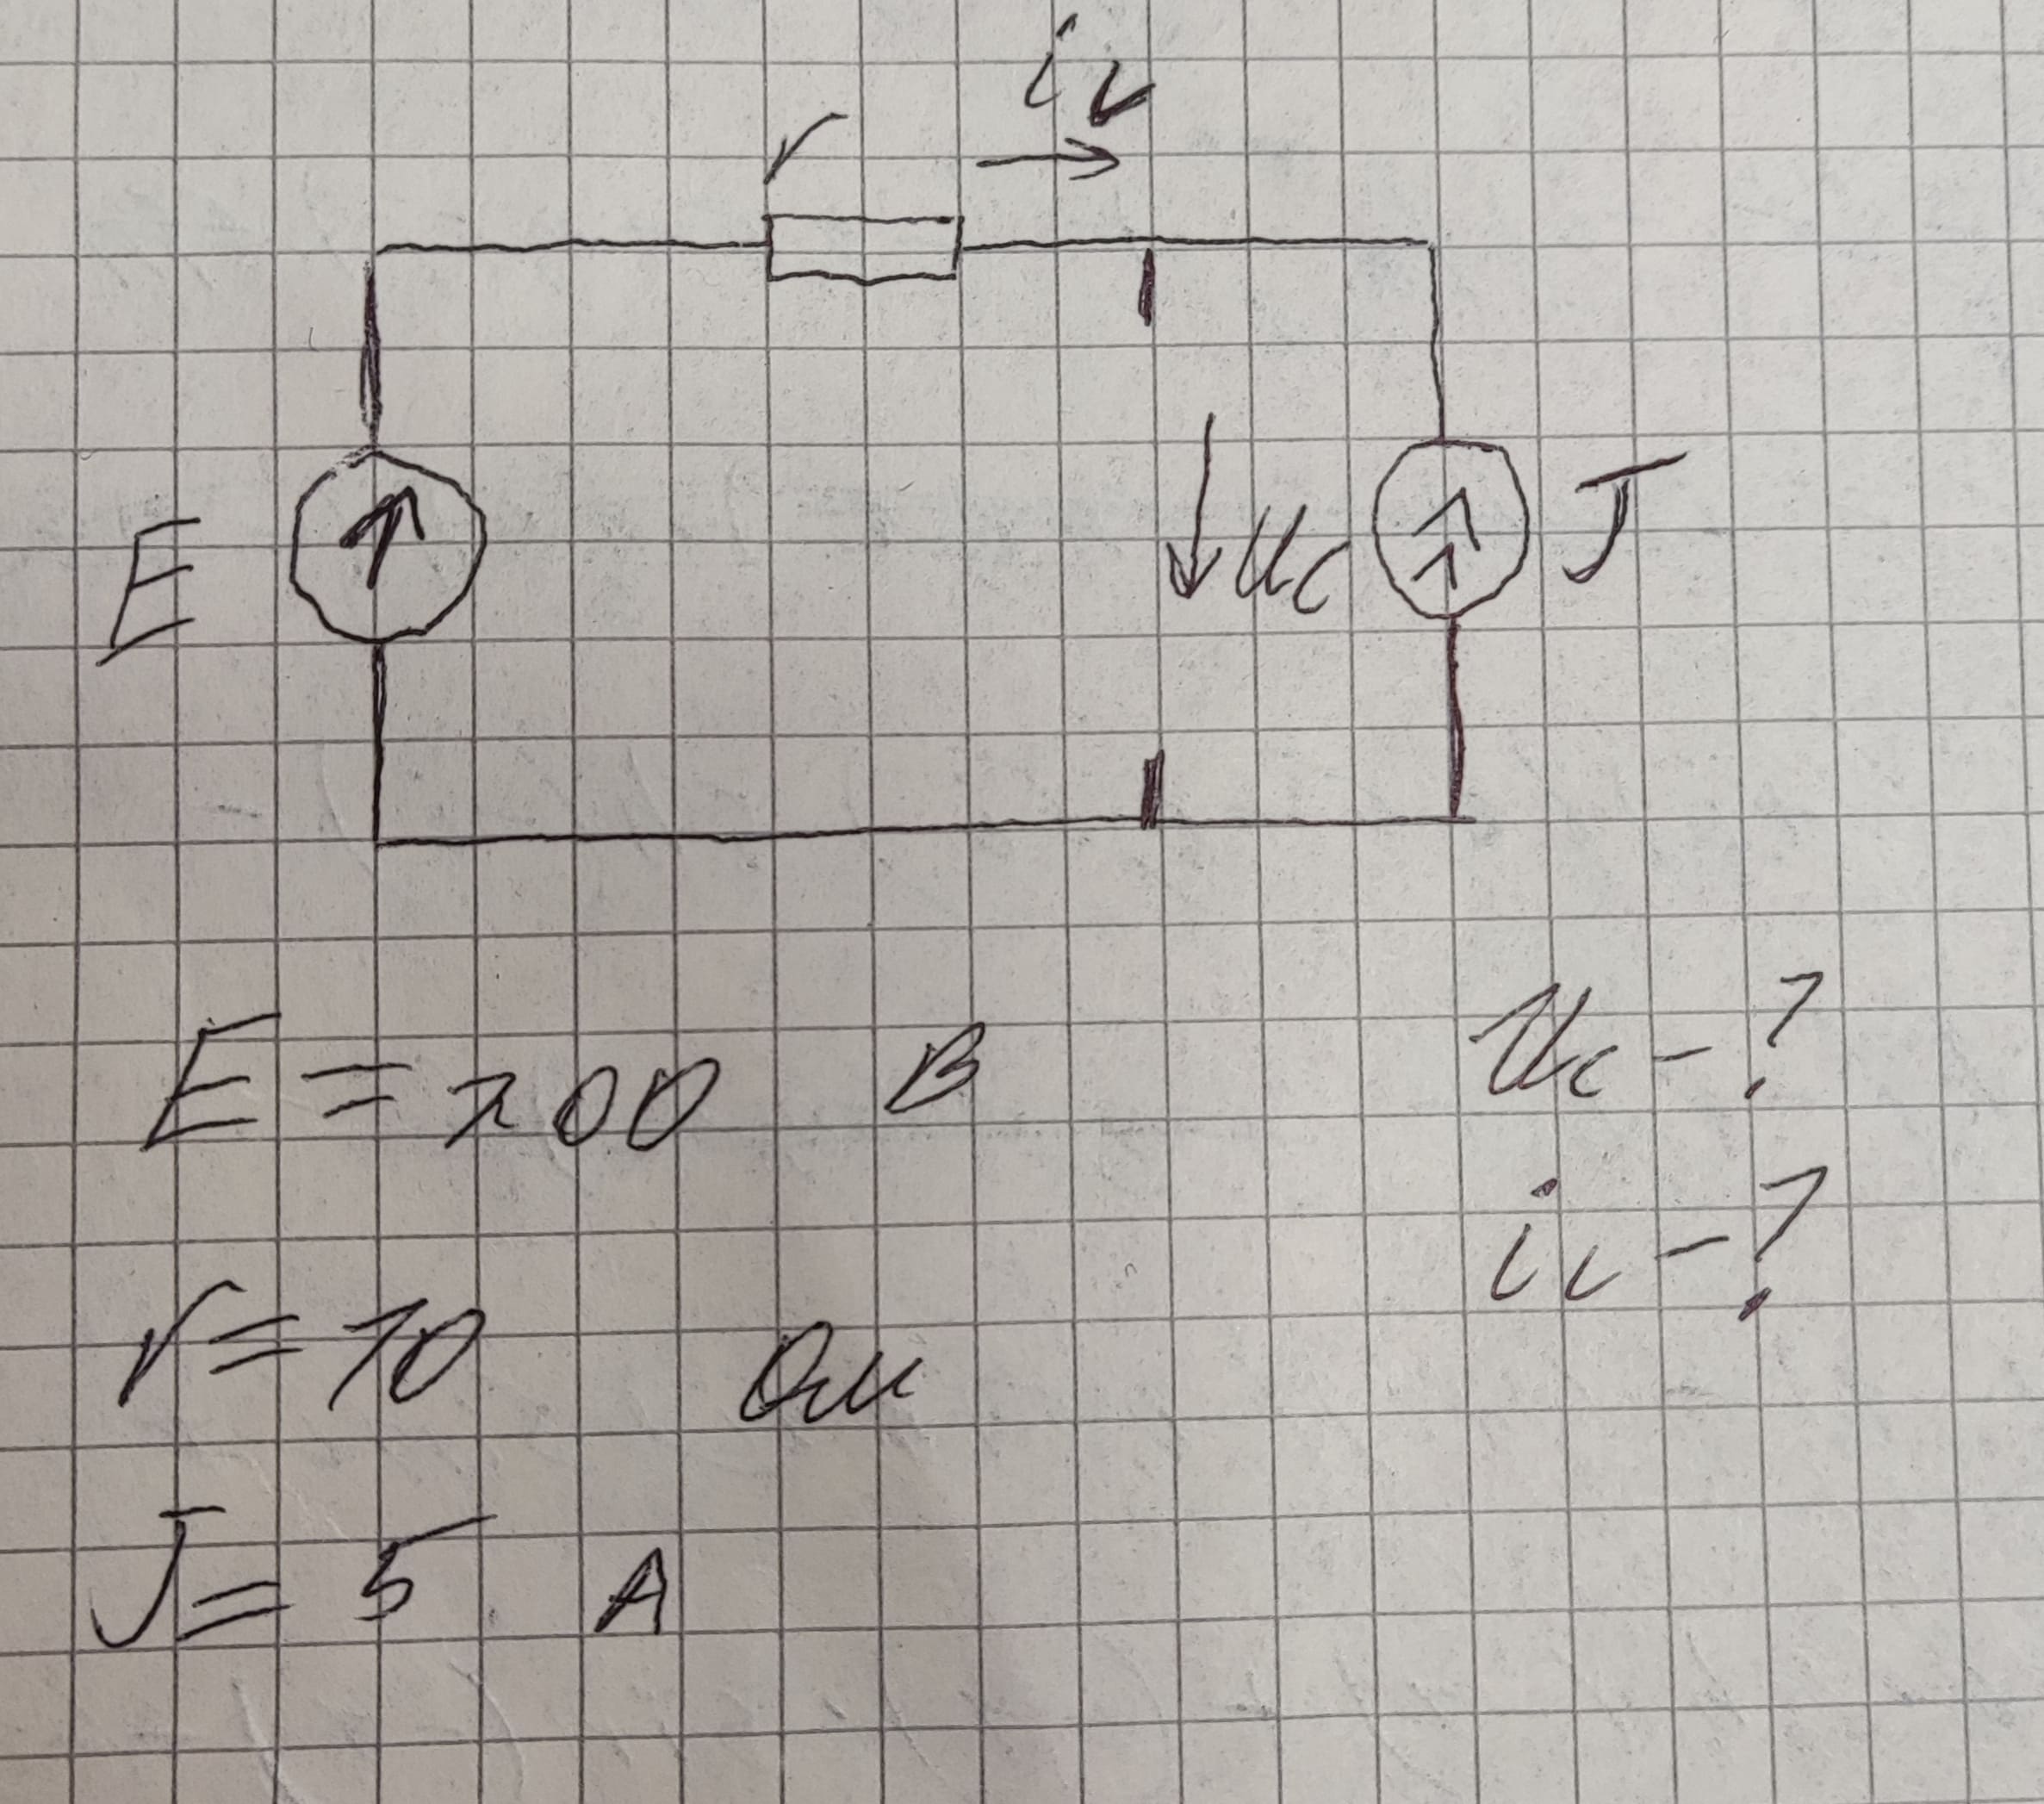 r
i_L
E
u_C
J
E = 200 В
u_C - ?
i_L - ?
r = 10 Ом
J = 5 А